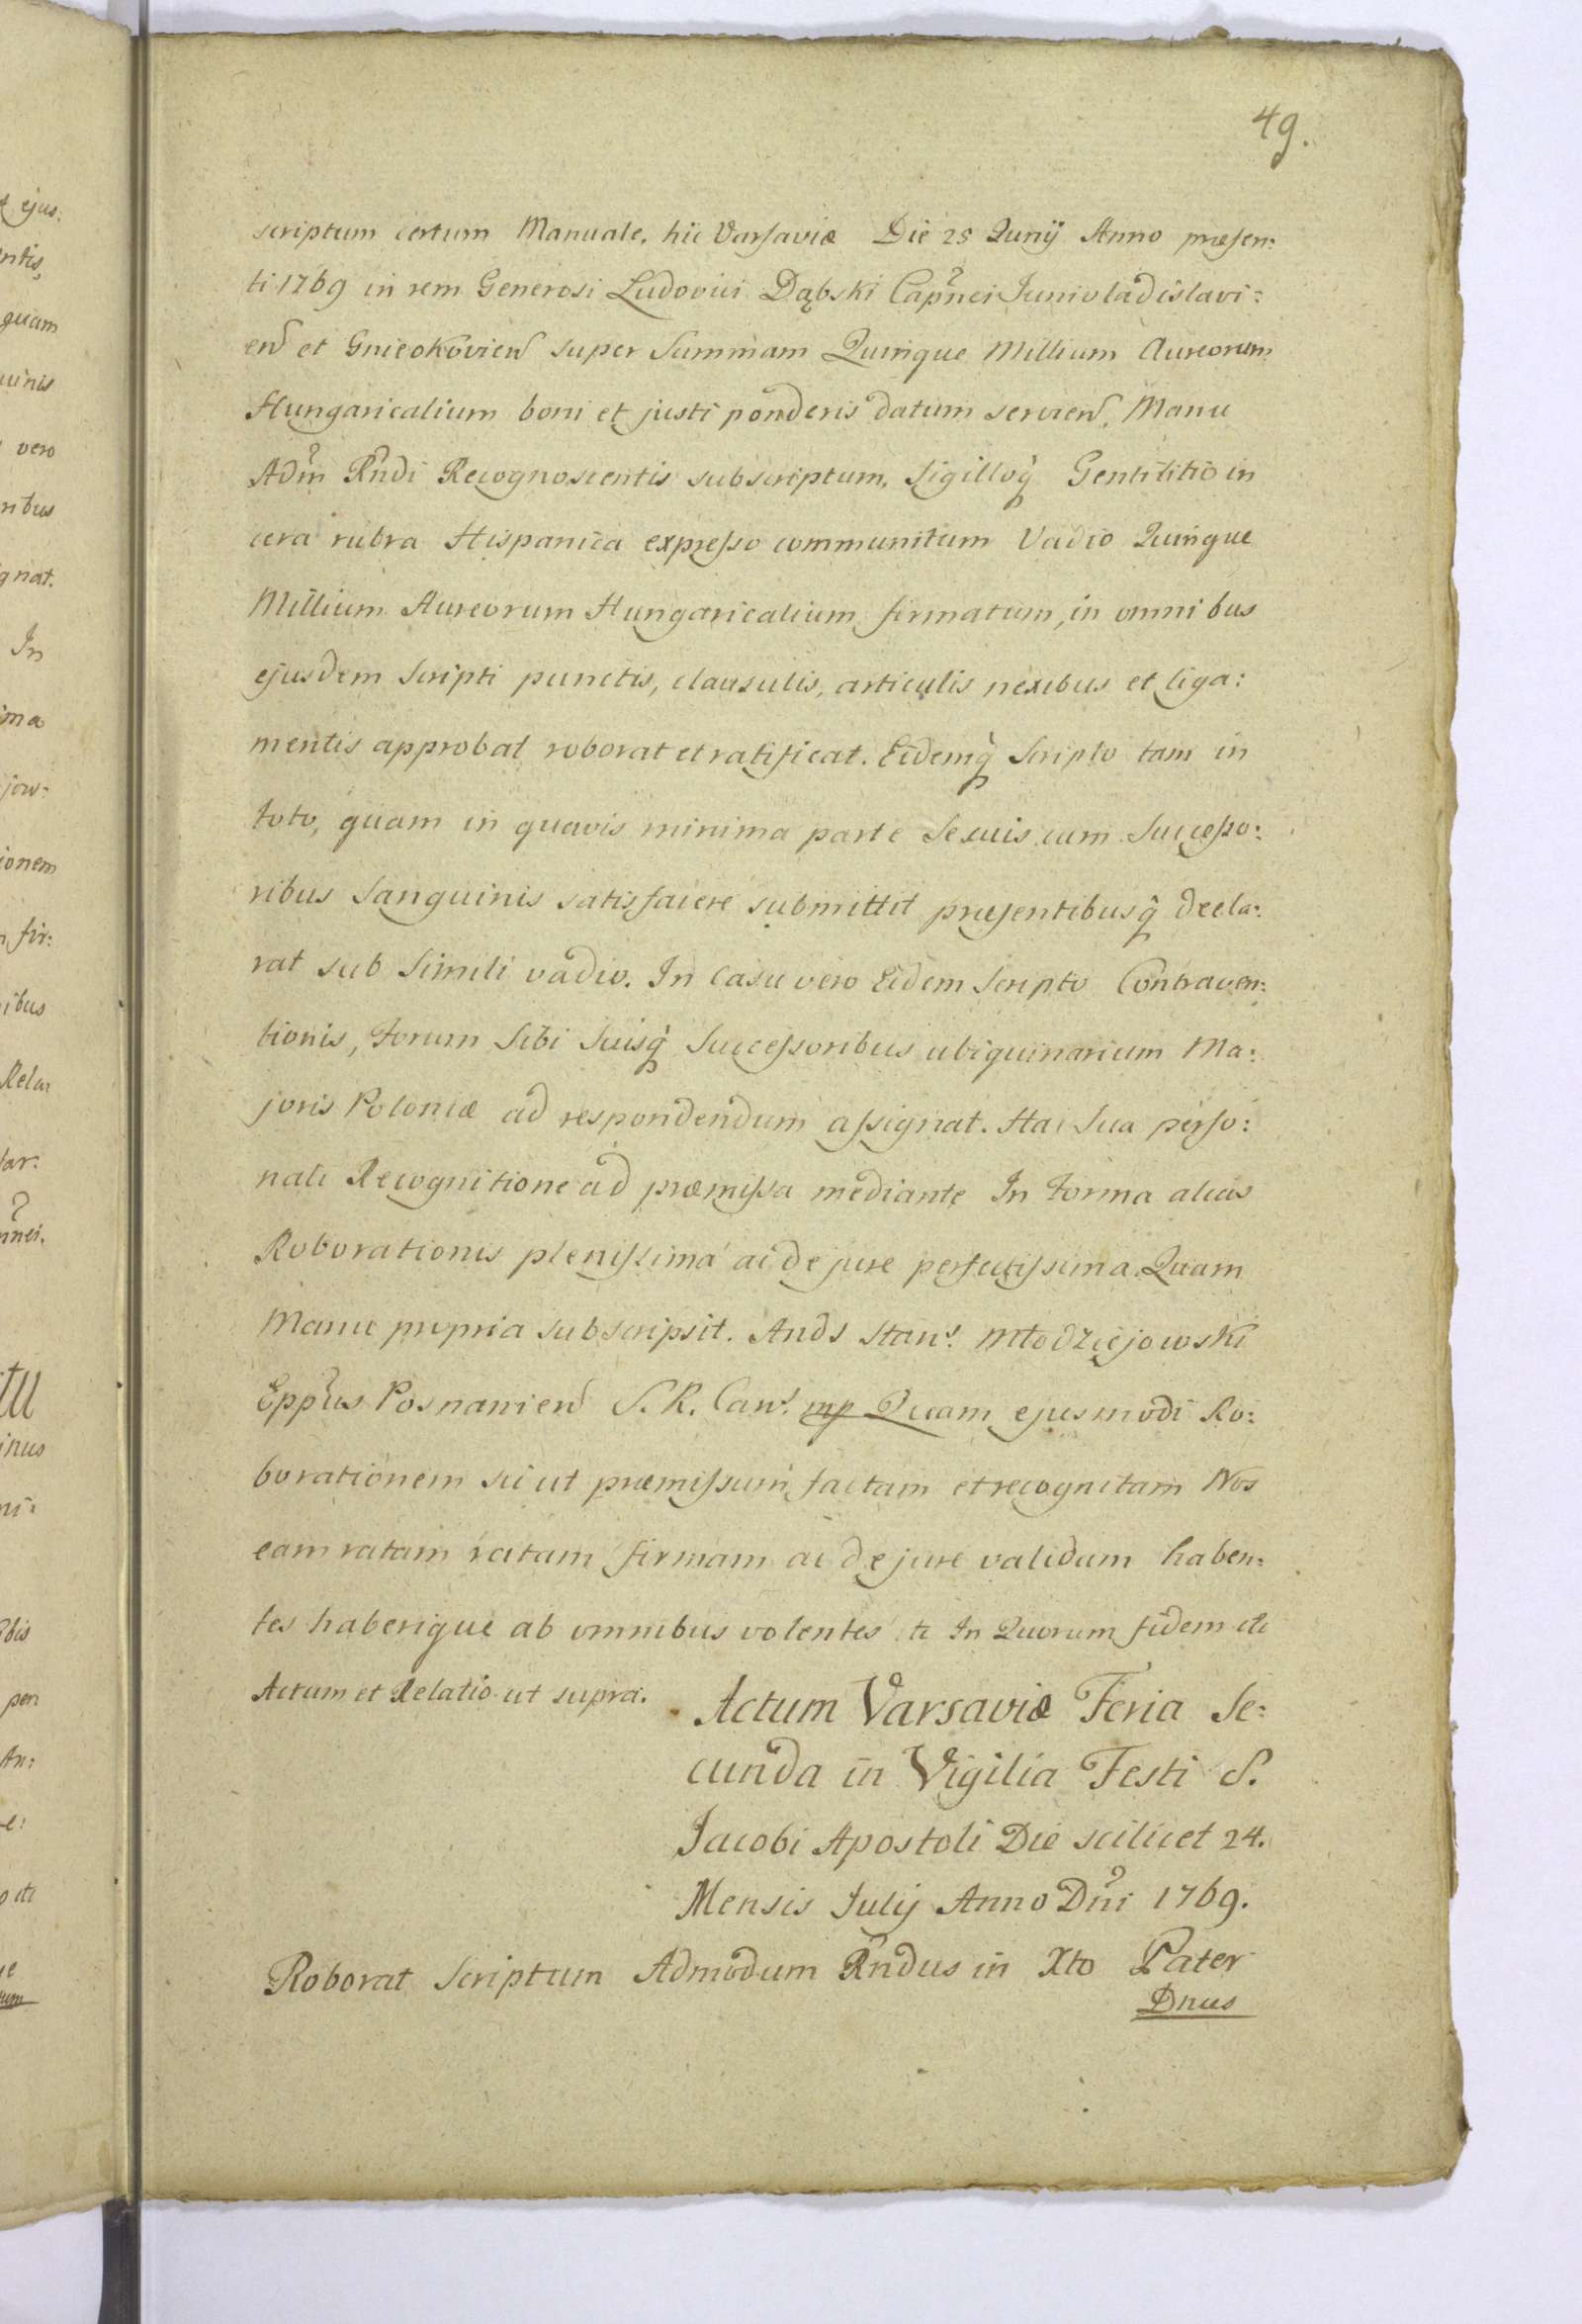 49.
scriptum certum Manuale, hic Varsaviæ Die 25 Junij Anno præsen:
ti 1769 in rem Generosi Ludovici Dąbski Capnei Junivladislavi:
en et Gnieokovien super Summam Quinque Millium Aureorum
Hungaricalium boni et justi ponderis datum servien. Manu
Adm Rndi Recognoscentis subscriptum, Sigilloq Gentilitio in
cera rubra Hispanica expresso communitum Vadio Quinque
Millium Aureorum Hungaricalium firmatum, in omnibus
ejusdem Scripti punctis, clausulis, articulis nexibus et liga:
mentis approbat roborat et ratificat. Eidemq Scripto tam in
toto, quam in quavis minima parte Se suis cum Successo:
ribus Sanguinis satisfacere submittit præsentibusq decla:
rat sub Simili vadio. In casu vero Eidem Scripto Contraven:
tionis, Forum Sibi Suisq Successoribus ubiquinarium Ma:
joris Poloniæ ad respondendum assignat. Hac Sua perso:
nali Recognitione ad præmissa mediante In Forma alias
Roborationis plenissima ac de jure perfectissima. Quam
Manu propria subscripsit. Ands Stans. Młodziejowski
Eppus Posnanien S. R. Cans. mp Quam ejusmodi Ro:
borationem sic ut præmissum factam et recognitam Nos
eam ratam ratam firmam ac de jure validam haben:
tes haberique ab omnibus volentes te In Quorum fidem etc
Actum et Relatio ut supra.
Actum Varsaviæ Feria Se:
cunda in Vigilia Festi S.
Jacobi Apostoli Die scilicet 24.
Mensis Julij Anno Dni 1769.
Roborat Scriptum Admodum Rndus in Xto Pater
Dnus